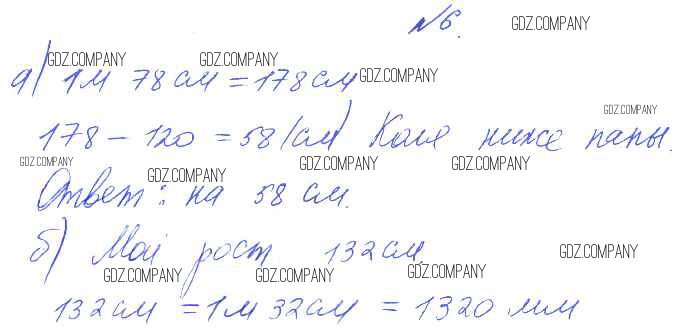 №6. GDZ.COMPANY
GDZ.COMPANY GDZ.COMPANY
а) 1м 78см = 178см GDZ.COMPANY
GDZ.COMPANY
178 - 120 = 58 (см) Коля ниже папы.
GDZ.COMPANY GDZ.COMPANY GDZ.COMPANY GDZ.COMPANY
Ответ: на 58 см.
б) Мой рост 132см. GDZ.COMPANY
GDZ.COMPANY GDZ.COMPANY GDZ.COMPANY
132см = 1м 32см = 1320 мм